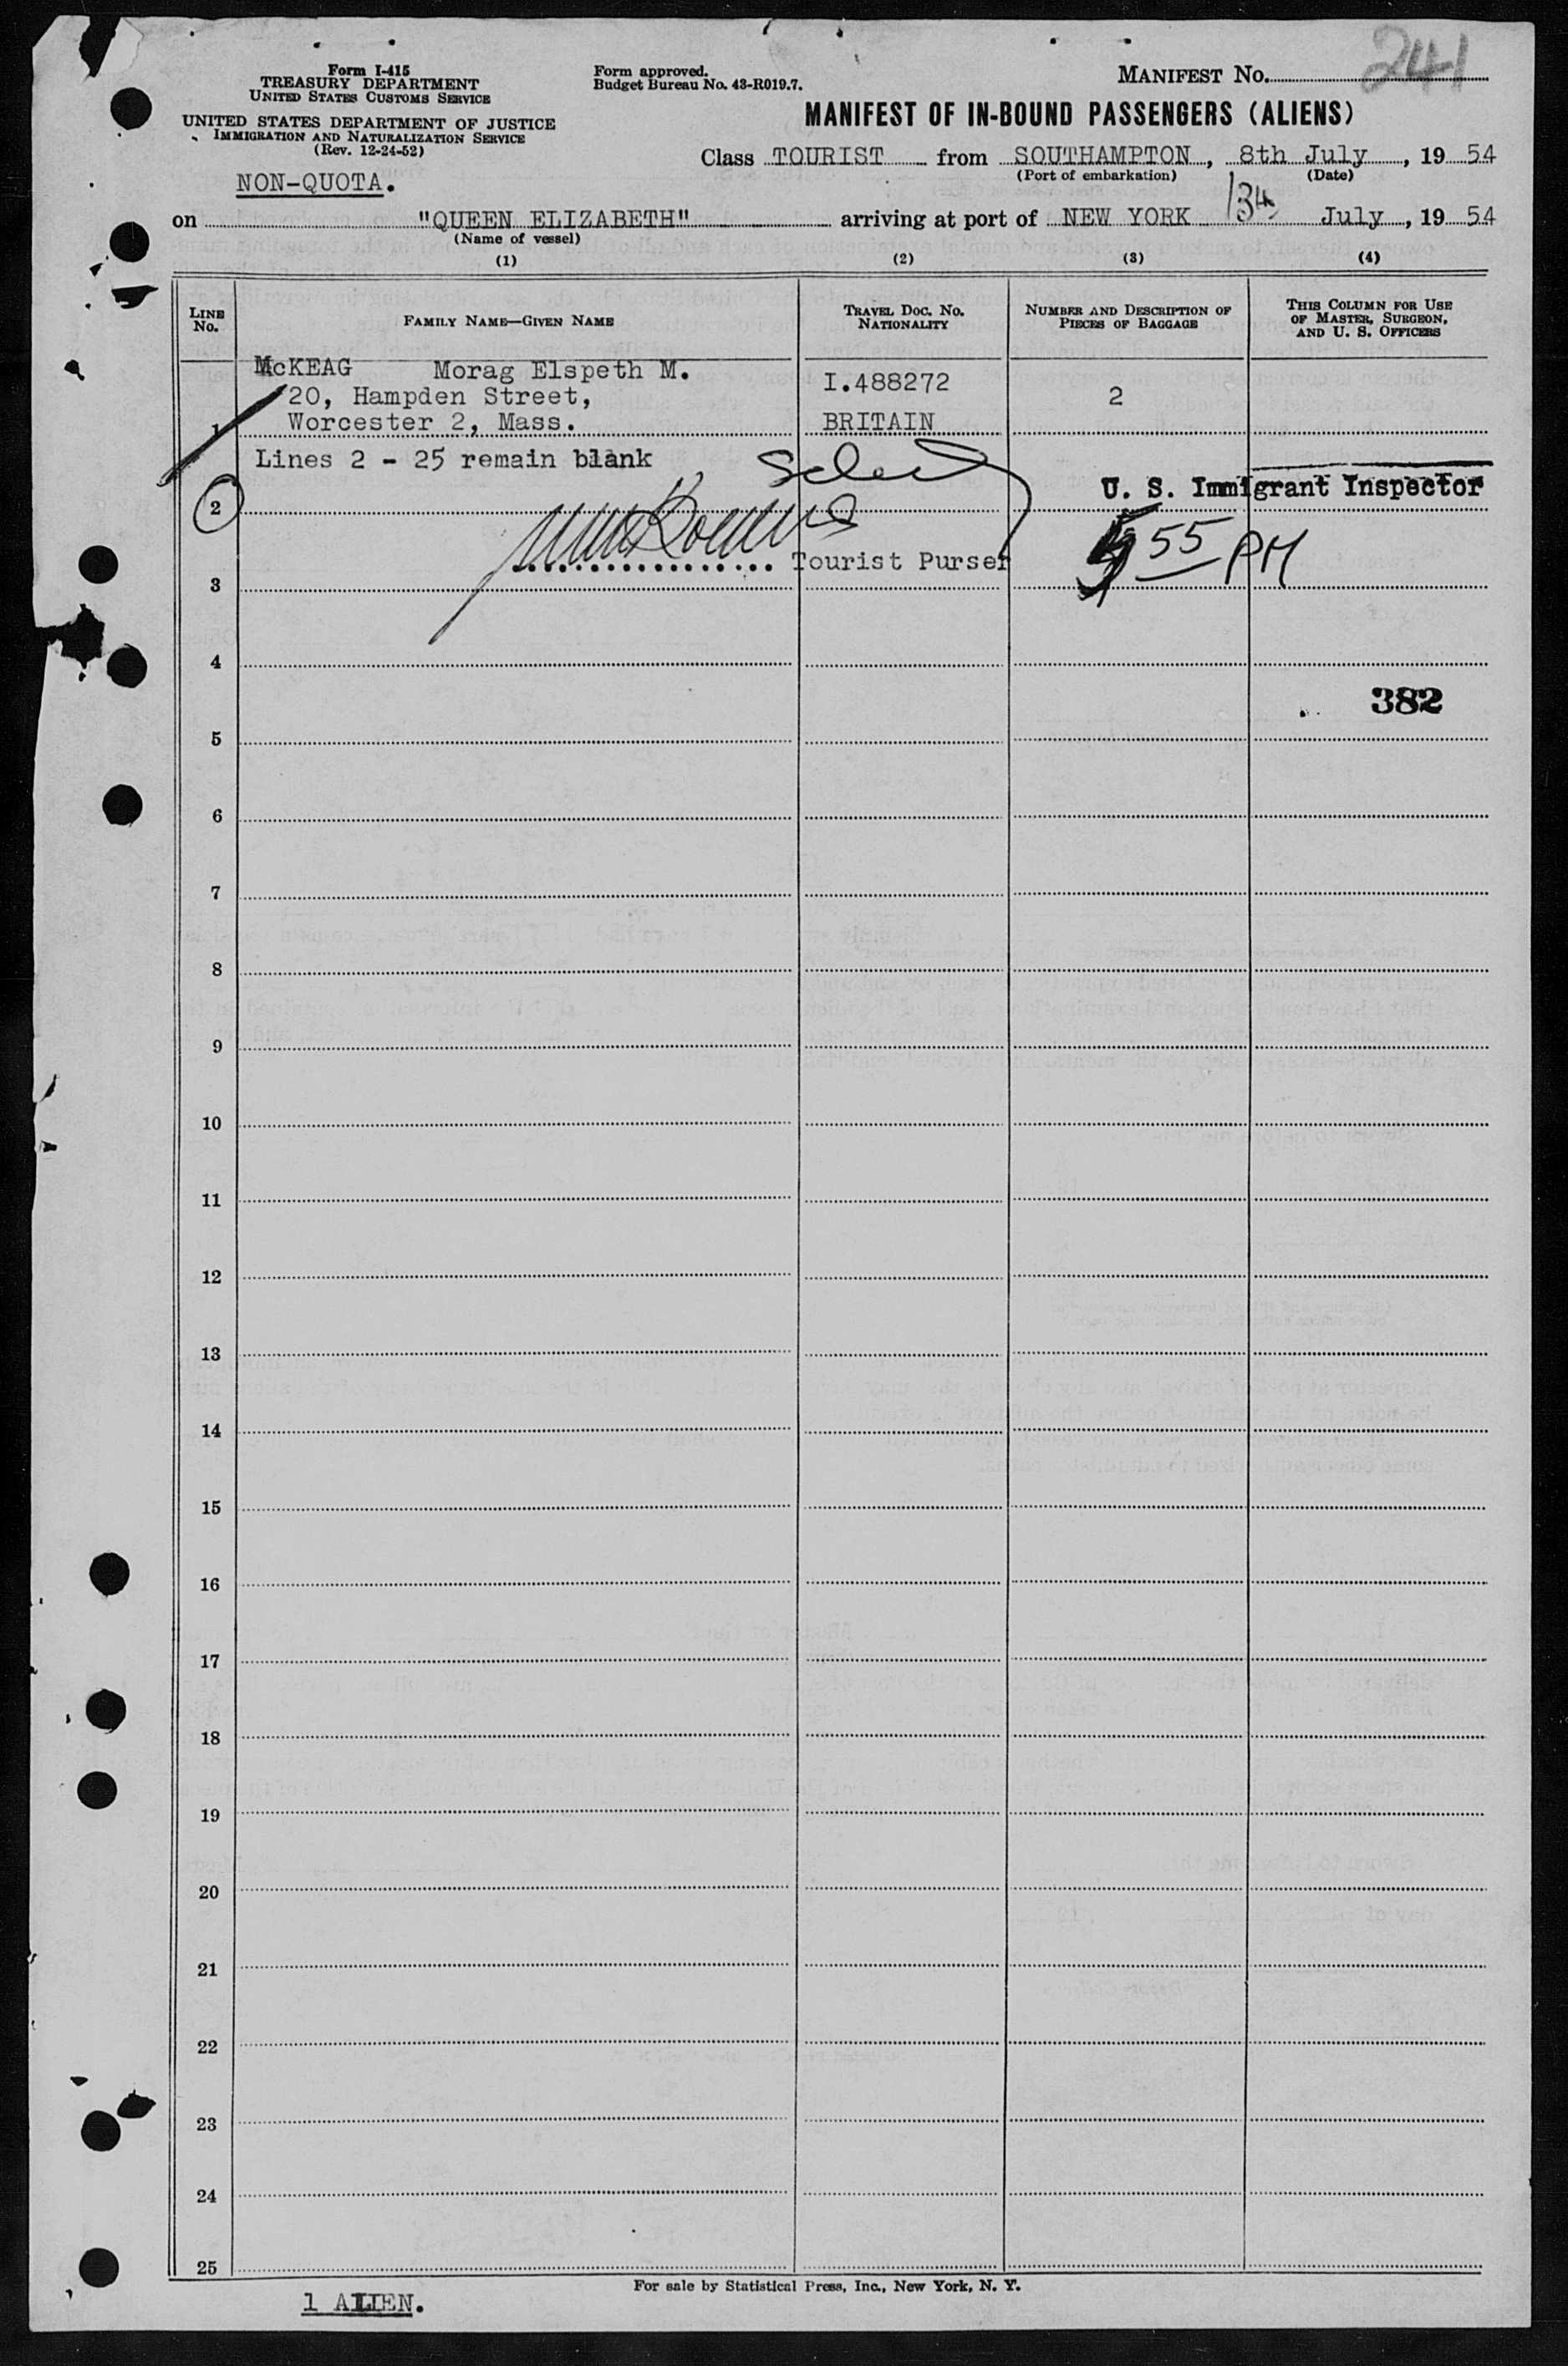 241
Form I-415
TREASURY DEPARTMENT
UNITED STATES CUSTOMS SERVICE
UNITED STATES DEPARTMENT OF JUSTICE
IMMIGRATION AND NATURALIZATION SERVICE
(Rev. 12-24-52)
NON-QUOTA.
Form approved.
Budget Bureau No. 43-R019.7.
MANIFEST NO.
MANIFEST OF IN-BOUND PASSENGERS (ALIENS)
Class TOURIST from SOUTHAMPTON, 8th July, 19 54
(Port of embarkation) (Date)
on "QUEEN ELIZABETH" arriving at port of NEW YORK 13th July, 19 54
(Name of vessel)
(1) (2) (3) (4)
LINE No. FAMILY NAME—GIVEN NAME TRAVEL DOC. NO. NATIONALITY NUMBER AND DESCRIPTION OF PIECES OF BAGGAGE THIS COLUMN FOR USE OF MASTER, SURGEON, AND U. S. OFFICERS
McKEAG Morag Elspeth M. I.488272
20, Hampden Street, 2
1 Worcester 2, Mass. BRITAIN
Lines 2 - 25 remain blank
U. S. Immigrant Inspector
2
5 55 PM
Tourist Purser
3
4
382
5
6
7
8
9
10
11
12
13
14
15
16
17
18
19
20
21
22
23
24
25
For sale by Statistical Press, Inc., New York, N. Y.
1 ALIEN.